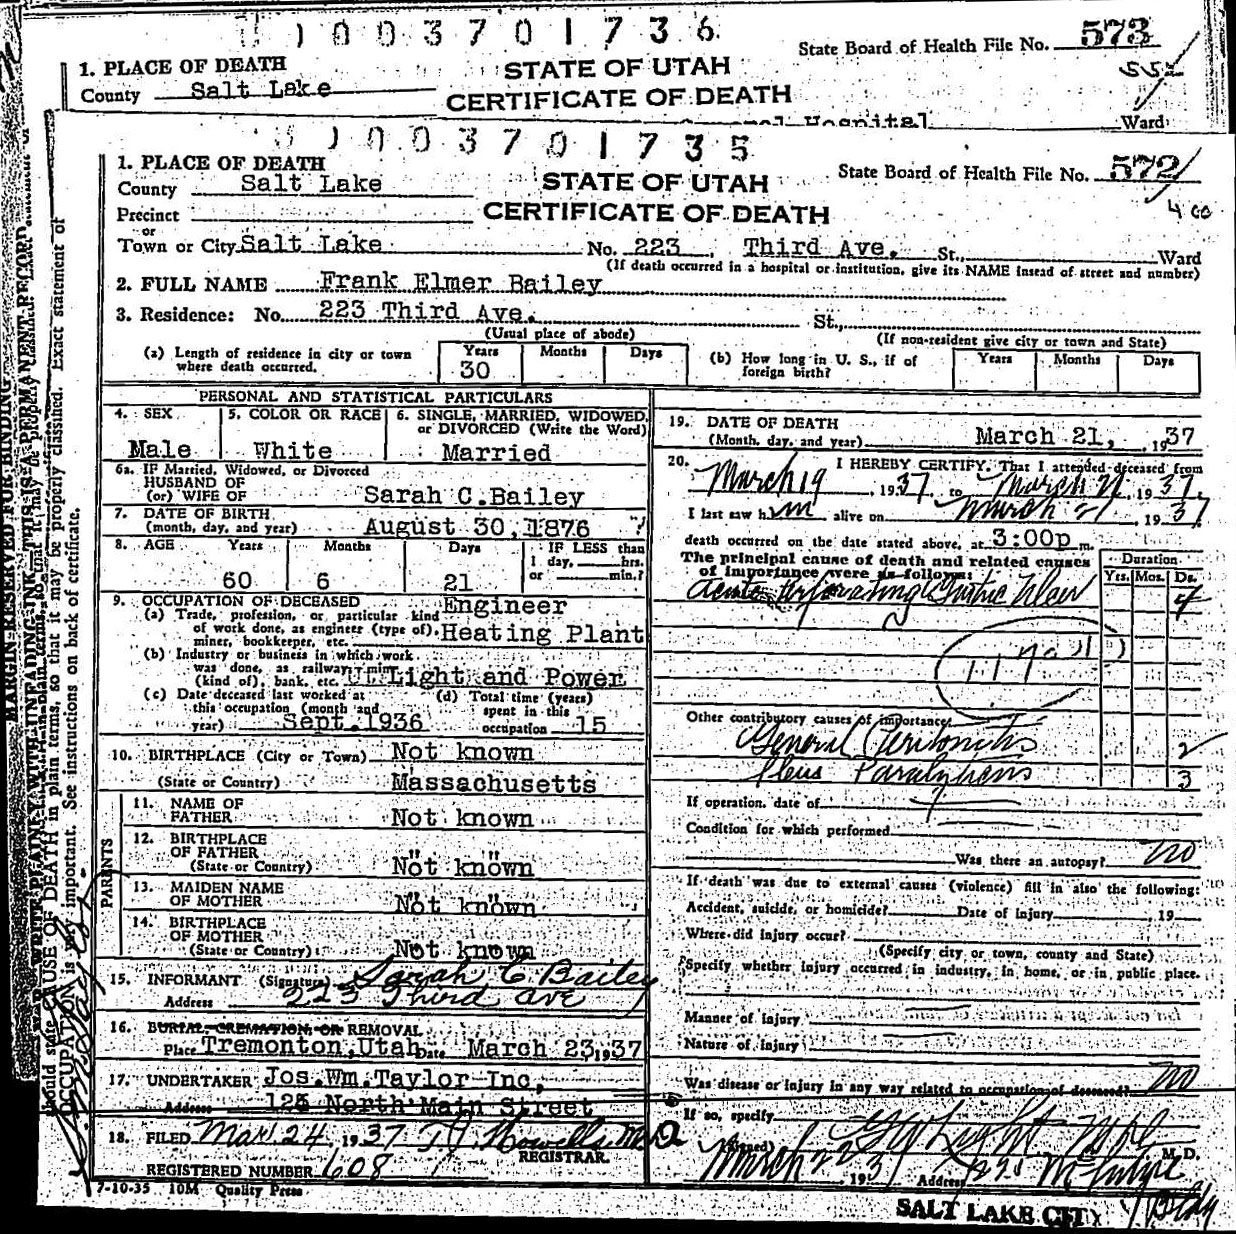 1003701736
State Board of Health File No. 573
1. PLACE OF DEATH
STATE OF UTAH
County Salt Lake
CERTIFICATE OF DEATH
Hospital
Ward
1003701735
1. PLACE OF DEATH
County Salt Lake
STATE OF UTAH
State Board of Health File No. 572
4 00
Precinct
CERTIFICATE OF DEATH
or
Town or City Salt Lake No. 223 Third Ave. St., Ward
(If death occurred in a hospital or institution, give its NAME insead of street and number)
2. FULL NAME Frank Elmer Bailey
3. Residence: No. 223 Third Ave. St.,
(Usual place of abode) (If non-resident give city or town and State)
(a) Length of residence in city or town where death occurred. Years 30 Months Days
(b) How long in U. S., if of foreign birth? Years Months Days
PERSONAL AND STATISTICAL PARTICULARS
4. SEX Male
5. COLOR OR RACE White
6. SINGLE, MARRIED, WIDOWED, or DIVORCED (Write the Word) Married
6a. IF Married, Widowed, or Divorced
HUSBAND OF
(or) WIFE OF Sarah C.Bailey
7. DATE OF BIRTH
(month, day, and year) August 30, 1876
8. AGE Years Months Days IF LESS than
1 day, hrs.
or min.?
60 6 21
9. OCCUPATION OF DECEASED Engineer
(a) Trade, profession, or particular kind
of work done, as engineer (type of). Heating Plant
miner, bookkeeper, etc.
(b) Industry or business in which work
was done, as railway, mine
(kind of), bank, etc. Ut.Light and Power
(c) Date deceased last worked at (d) Total time (years)
this occupation (month and spent in this
year) Sept.1936 occupation 15
10. BIRTHPLACE (City or Town) Not known
(State or Country) Massachusetts
PARENTS
11. NAME OF
FATHER Not known
12. BIRTHPLACE
OF FATHER
(State or Country) Not known
13. MAIDEN NAME
OF MOTHER Not known
14. BIRTHPLACE
OF MOTHER
(State or Country) Not known
15. INFORMANT (Signature) Sarah C Bailey
Address 223 Third Ave
16. BURIAL, CREMATION, OR REMOVAL
Place Tremonton,Utah Date March 23,1937
17. UNDERTAKER Jos.Wm.Taylor Inc,
Address 125 North Main Street
18. FILED Mar 24 1937 T J Howells MD
REGISTRAR.
REGISTERED NUMBER 608
7-10-35 10M Quality Press
19. DATE OF DEATH
(Month, day, and year) March 21, 1937
20. I HEREBY CERTIFY, That I attended deceased from
March 19, 1937, to March 21, 1937.
I last saw him alive on March 21, 1937
death occurred on the date stated above, at 3:00p m.
The principal cause of death and related causes
of importance were as follows:
Duration
Yrs. Mos. Ds.
Acute Perforating Gastric Ulcer
Other contributory causes of importance:
General Peritonitis 2
Ileus Paralyticus 3
If operation, date of
Condition for which performed
Was there an autopsy? no
If death was due to external causes (violence) fill in also the following:
Accident, suicide, or homicide? Date of Injury 19
Where did injury occur?
(Specify city or town, county and State)
Specify whether injury occurred in industry, in home, or in public place.
Manner of injury
Nature of injury
Was disease or injury in any way related to occupation of deceased? no
If so, specify
(Signed) M. D.
March 22 1937 Address McIntyre
Bldg
SALT LAKE CITY
MARGIN RESERVED FOR BINDING
WRITE PLAINLY WITH UNFADING INK—THIS IS A PERMANENT RECORD
should state CAUSE OF DEATH in plain terms, so that it may be properly classified. Exact statement of
OCCUPATION is very important. See instructions on back of certificate.